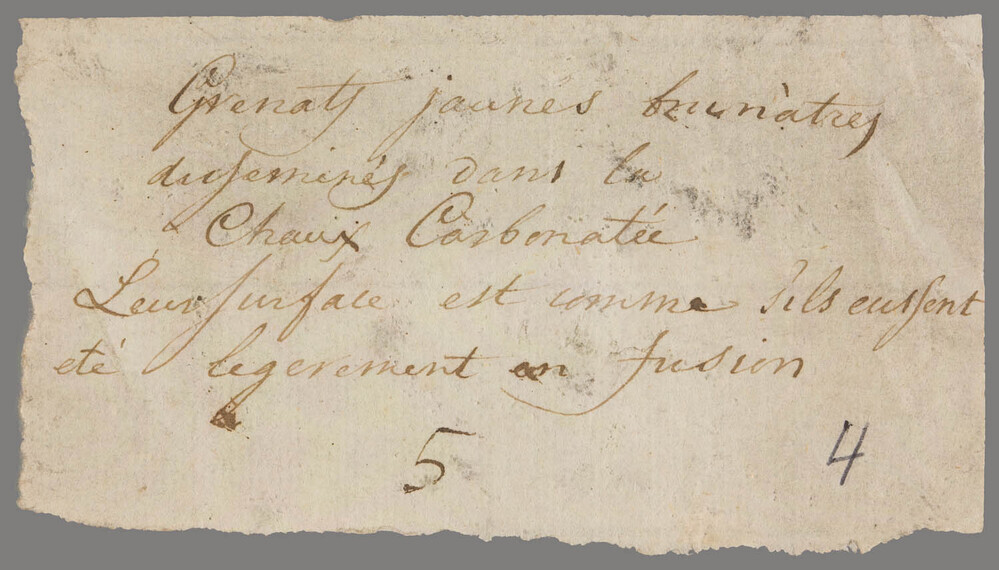 Grenats jaunes brunâtres
disseminés dans la
Chaux Carbonatée
Leur surface est comme s'ils eussent
eté legerement en fusion
5 4